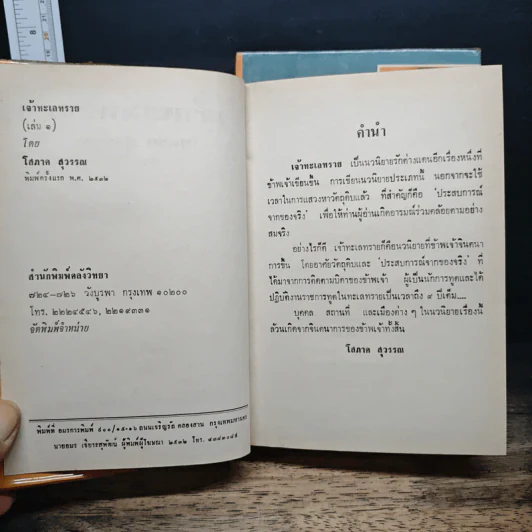 8
เจ้าทะเลทราย
(เล่ม ๑)
โดย
โสภาค สุวรรณ
พิมพ์ครั้งแรก พ.ศ. ๒๕๓๒
สำนักพิมพ์คลังวิทยา
๗๒๔–๗๒๖ วังบูรพา กรุงเทพ ๑๐๒๐๐
โทร. ๒๒๒๔๕๔๖, ๒๒๑๙๓๓๑
จัดพิมพ์จำหน่าย
พิมพ์ที่ อมรการพิมพ์ ถนนเจริญรัถ คลองสาน กรุงเทพมหานคร
นายอมร ผู้พิมพ์ผู้โฆษณา ๒๕๓๒ โทร.
คำนำ
เจ้าทะเลทราย เป็นนวนิยายรักต่างแดนอีกเรื่องหนึ่งที่
ข้าพเจ้าเขียนขึ้น การเขียนนวนิยายประเภทนี้ นอกจากจะใช้
เวลาในการแสวงหาวัตถุดิบแล้ว ที่สำคัญก็คือ 'ประสบการณ์
จากของจริง' เพื่อให้ท่านผู้อ่านเกิดอารมณ์ร่วมคล้อยตามอย่าง
สมจริง
อย่างไรก็ดี เจ้าทะเลทรายก็คือนวนิยายที่ข้าพเจ้าจินตนา
การขึ้น โดยอาศัยวัตถุดิบและ 'ประสบการณ์จากของจริง' ที่
ได้มาจากการติดตามบิดาของข้าพเจ้า ผู้เป็นนักการทูตและได้
ปฏิบัติงานราชการทูตในทะเลทรายเป็นเวลาถึง ๙ ปีเต็ม....
บุคคล สถานที่ และเมืองต่าง ๆ ในนวนิยายเรื่องนี้
ล้วนเกิดจากจินตนาการของข้าพเจ้าทั้งสิ้น
โสภาค สุวรรณ